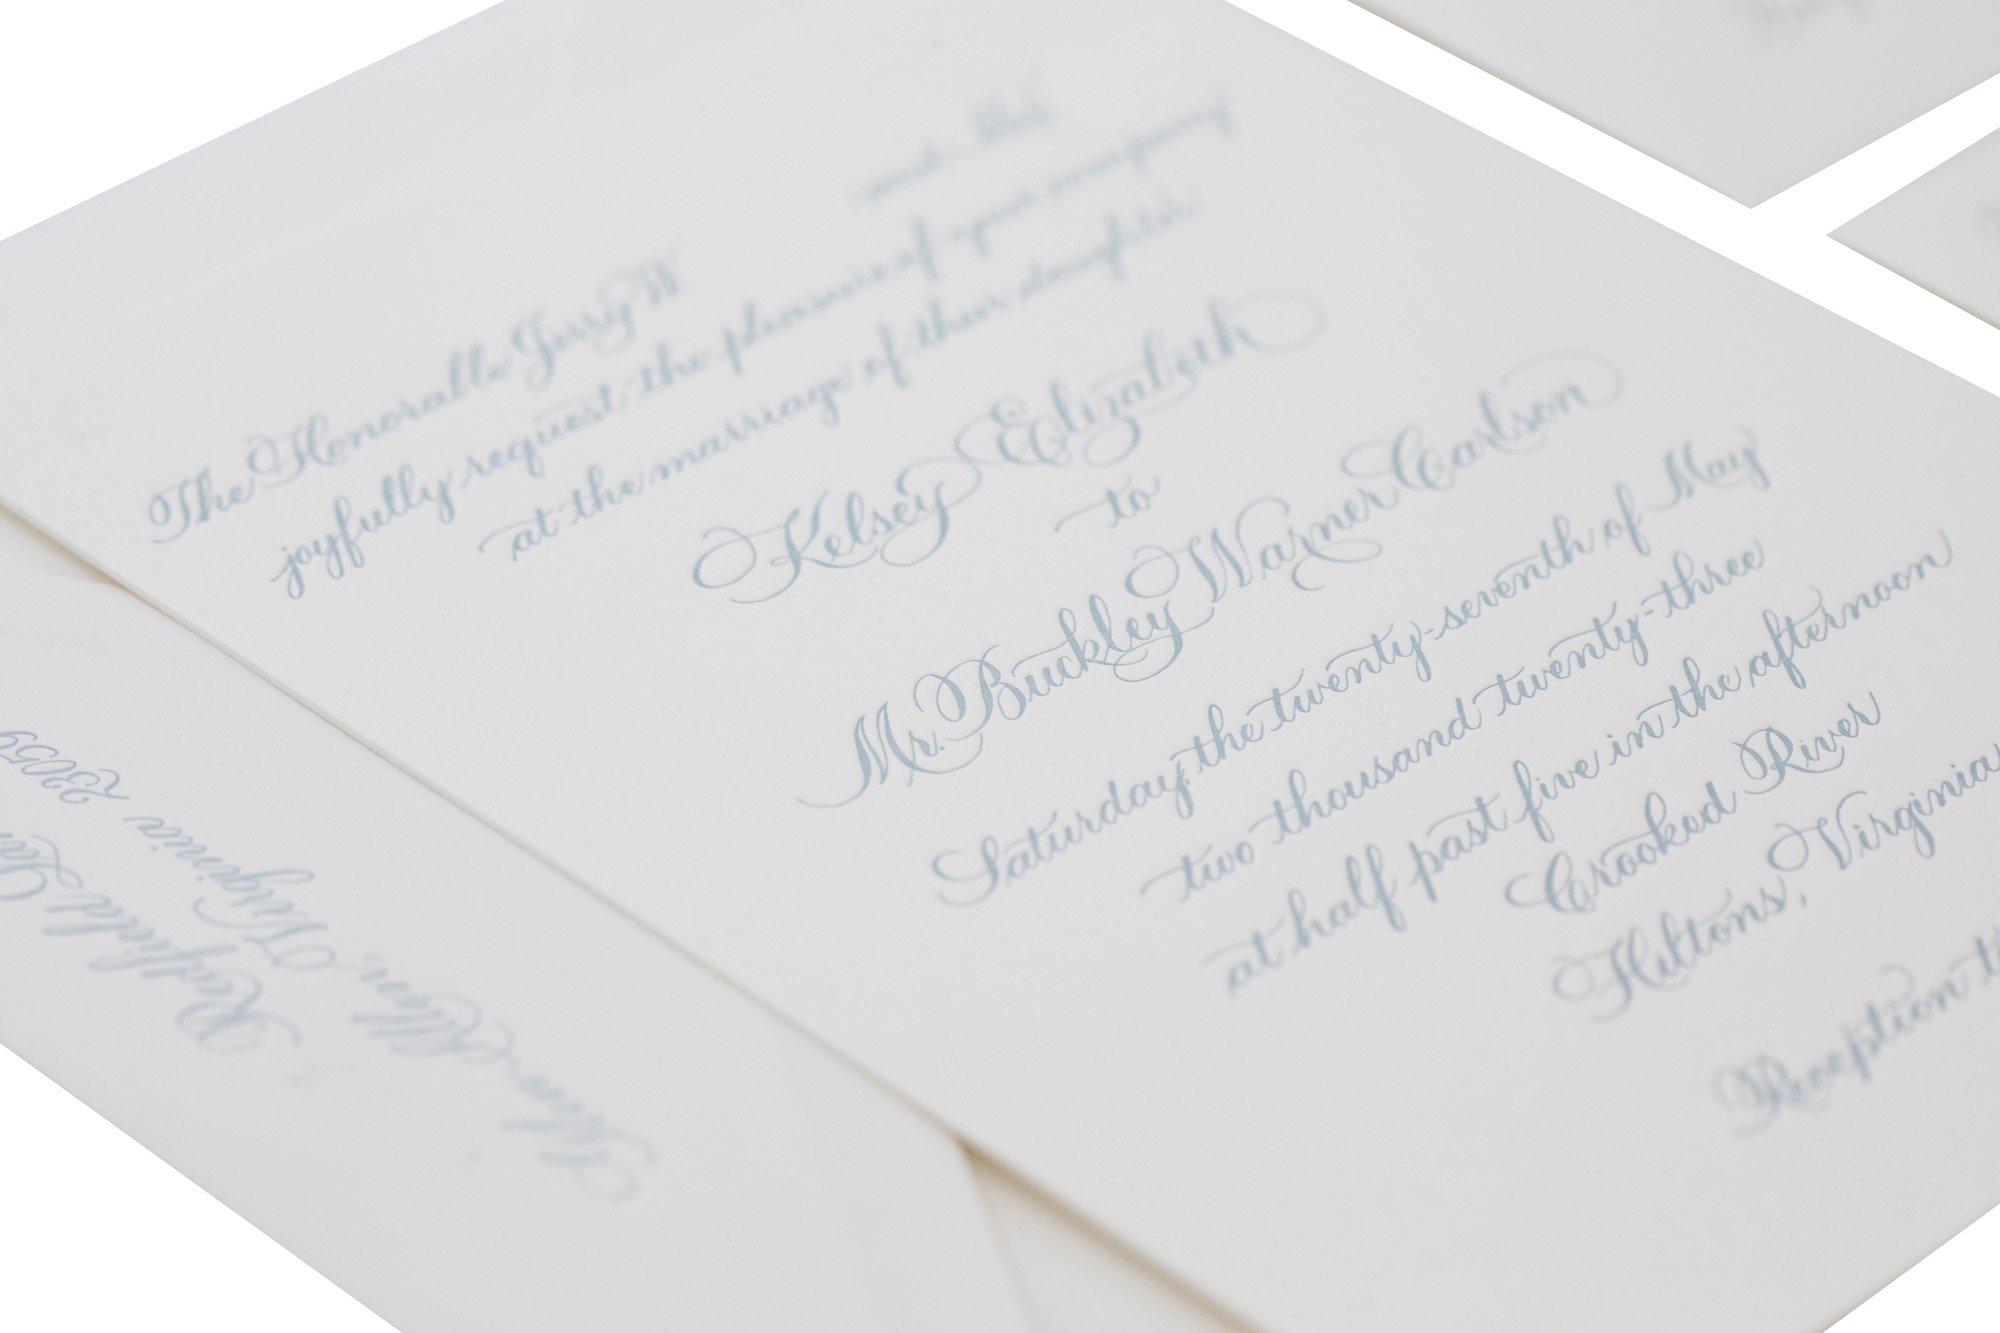 The Honorable Jerry W
joyfully request the pleasure of your company
at the marriage of their daughter
Kelsey Elizabeth
to
Mr. Buckley Warner Carlson
Saturday, the twenty-seventh of May
two thousand twenty-three
at half past five in the afternoon
Crooked River
Hiltons, Virginia
Reception
Redfield
Glen Allen, Virginia
23059